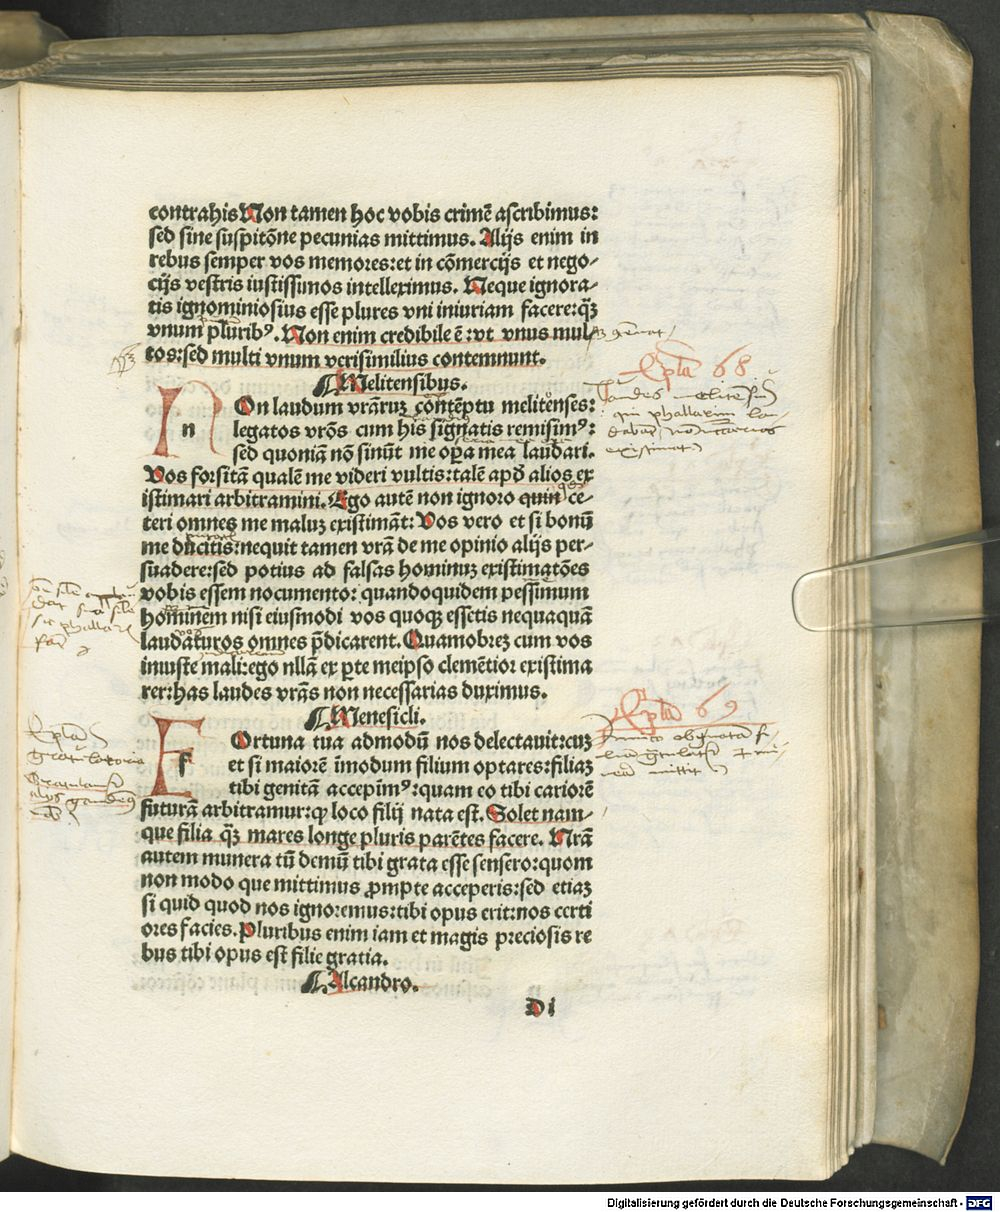 contrahis Non tamen hoc vobis crimē ascribimus:
sed sine suspitōne pecunias mittimus. Alijs enim in
rebus semper vos memores: et in cōmercijs et nego-
cijs vestris iustissimos intelleximus. Neque ignora-
tis ignominiosius esse plures vni iniuriam facere: qꝫ
vnum pluribꝰ. Non enim credibile ē: vt vnus mul
tos: sed multi vnum verisimilius contemnunt.
¶ Melitensibus.
n
On laudum vrāruꝫ contēptu melitenses:
legatos vrōs cum his signatis remisimꝰ:
sed quoniā nō sinūt me oꝑa mea laudari.
Vos forsitā qualē me videri vultis: talē apđ alios ex
istimari arbitramini. Ego autē non ignoro quin ce-
teri omnes me maluꝫ existimāt: Vos vero et si bonū
me ducitis: nequit tamen vrā de me opinio alijs per-
suadere: sed potius ad falsas hominuꝫ existimatōes
vobis essem nocumento: quandoquidem pessimum
hominem nisi eiusmodi vos quoqꝫ essetis nequaquā
laudaturos omnes p̄dicarent. Quamobreꝫ cum vos
iniuste mali: ego nllā ex ꝑte meipso clemētior existima
rer: has laudes vrās non necessarias duximus.
¶ Menesicli.
f
Ortuna tua admodū nos delectauit: cuꝫ
et si maiorē īmodum filium optares: filiaꝫ
tibi genitā accepimꝰ: quam eo tibi cariorē
futurā arbitramur: ꝙ loco filij nata est. Solet nam-
que filia qꝫ mares longe pluris parētes facere. Nrā
autem munera tū demū tibi grata esse sensero: quom
non modo que mittimus ꝓmpte acceperis: sed etiaꝫ
si quid quod nos ignoremus: tibi opus erit: nos certi
ores facies. Pluribus enim iam et magis preciosis re
bus tibi opus est filie gratia.
¶ Alcandro.
Di
Epl̄a 68
Laudes melitensiū
Epl̄a 69
Digitalisierung gefördert durch die Deutsche Forschungsgemeinschaft - DFG